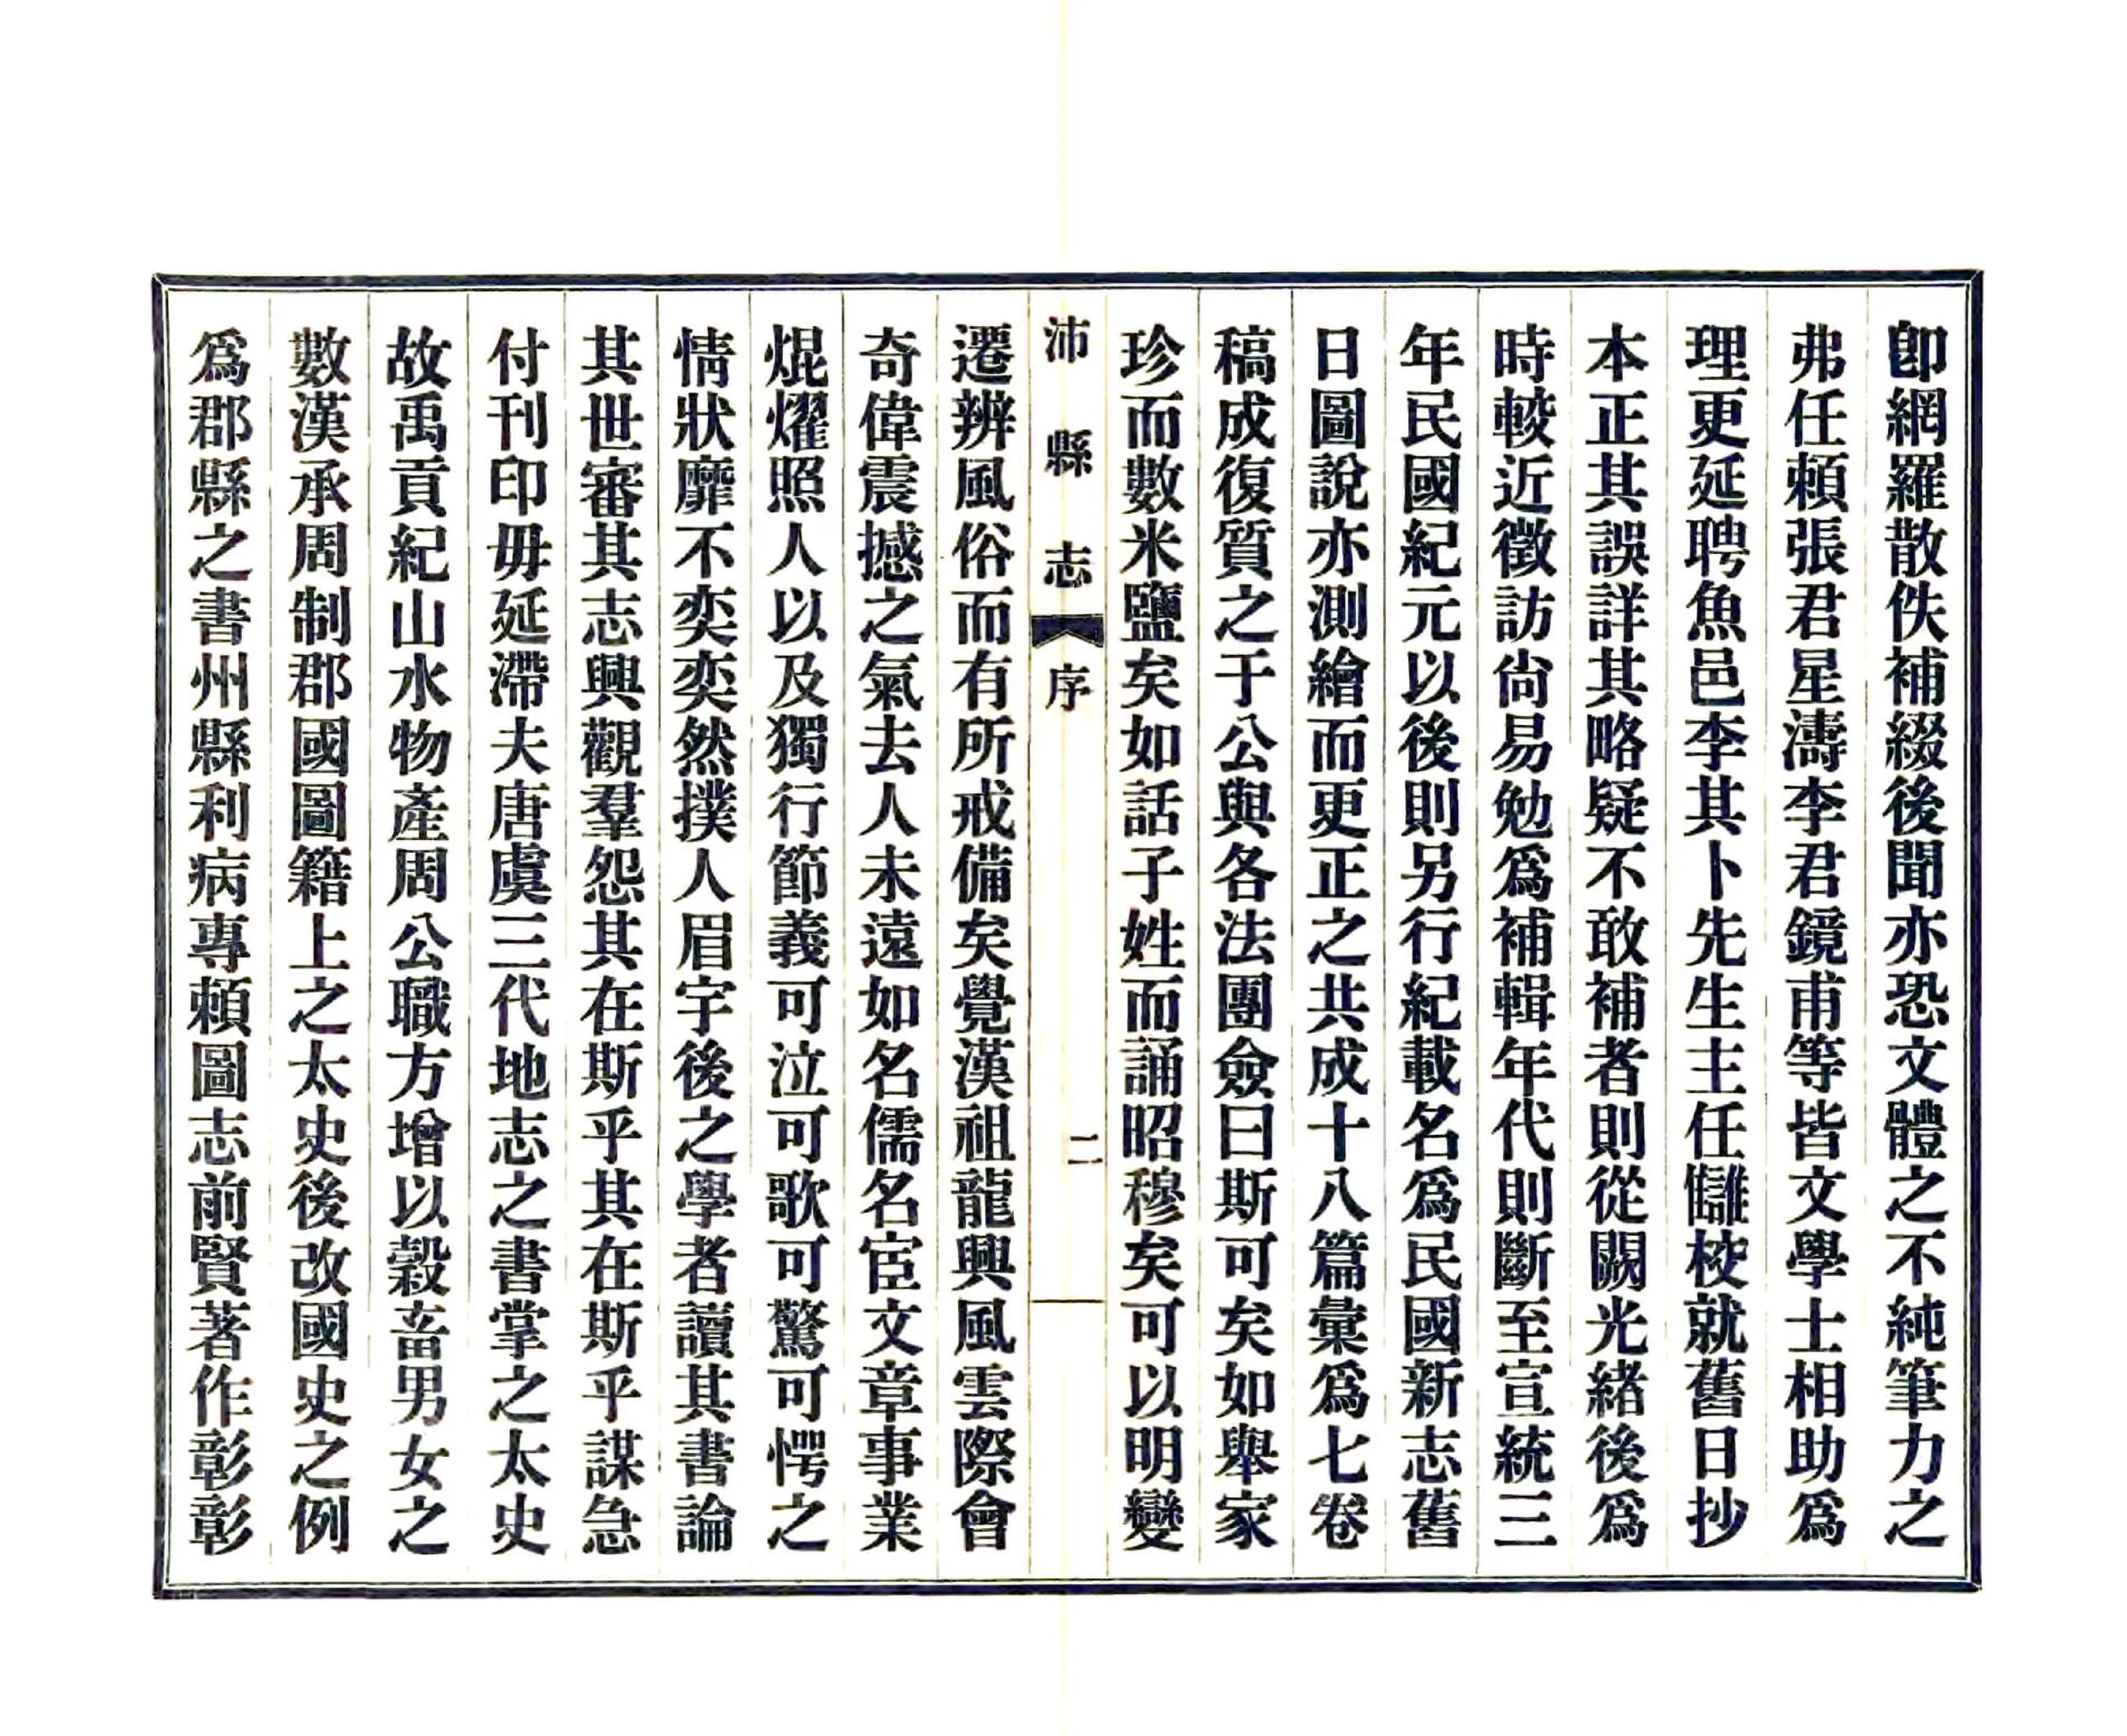 卽網羅散佚補綴後聞亦恐文體之不純筆力之
弗任賴張君星濤李君鏡甫等皆文學士相助爲
理更延聘魚邑李其卜先生主任讎校就舊日抄
本正其誤詳其略疑不敢補者則從闕光緒後爲
時較近徵訪尙易勉爲補輯年代則斷至宣統三
年民國紀元以後則另行紀載名爲民國新志舊
日圖說亦測繪而更正之共成十八篇彙爲七卷
稿成復質之于公與各法團僉曰斯可矣如舉家
珍而數米鹽矣如話子姓而誦昭穆矣可以明變
沛縣志 序 二
遷辨風俗而有所戒備矣覺漢祖龍興風雲際會
奇偉震撼之氣去人未遠如名儒名宦文章事業
焜燿照人以及獨行節義可泣可歌可驚可愕之
情狀靡不奕奕然撲人眉宇後之學者讀其書論
其世審其志興觀羣怨其在斯乎其在斯乎謀急
付刊印毋延滯夫唐虞三代地志之書掌之太史
故禹貢紀山水物產周公職方增以穀畜男女之
數漢承周制郡國圖籍上之太史後改國史之例
爲郡縣之書州縣利病專賴圖志前賢著作彰彰